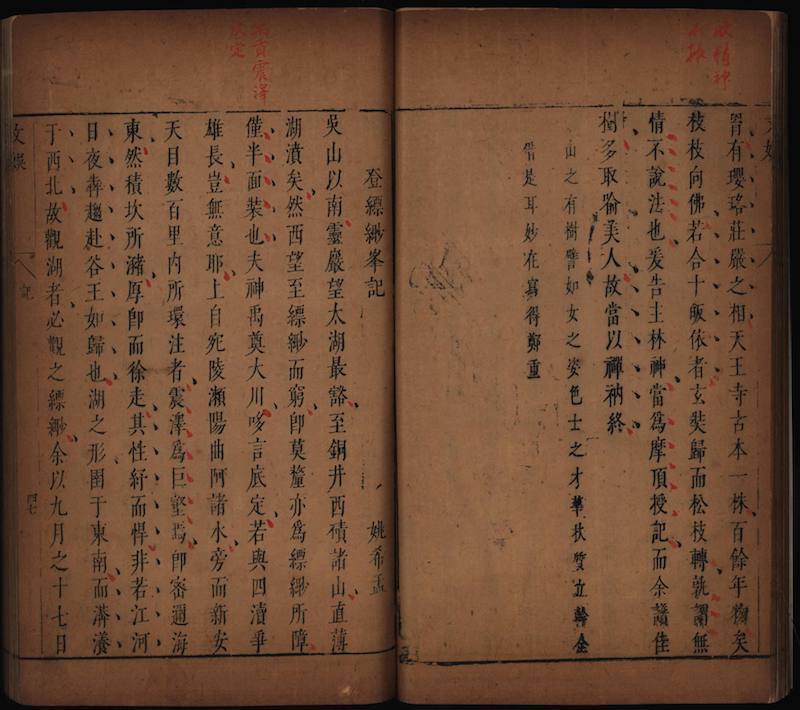 有瓔珞莊嚴之相天王寺古本一株百餘年物矣
枝枝向佛若合十皈依者玄奘歸而松枝轉孰謂無
情不說法也爰告主林神當為摩頂授記而余讚佳
樹多取喻美人故當以禪衲終
山之有樹譬如女之姿色士之才華狀質立幹全
借是耳妙在寫得鄭重
禹貢震澤
底定
登縹緲峯記 姚希孟
吳山以南靈巖望太湖最豁至銅井西磧諸山直薄
湖濆矣然西望至縹緲而窮卽莫釐亦為縹緲所障
僅半面裝也夫神禹奠大川哆言底定若與四瀆爭
雄長豈無意耶上自宛陵瀨陽曲阿諸水旁而新安
天目數百里內所環注者震澤為巨壑焉卽密邇海
東然積坎所瀦厚卽而徐走其性紓而悍非若江河
日夜犇趨赴谷王如歸也湖之形圉于東南而漭瀁
于西北故觀湖者必觀之縹緲余以九月之十七日
文娛 記 四七